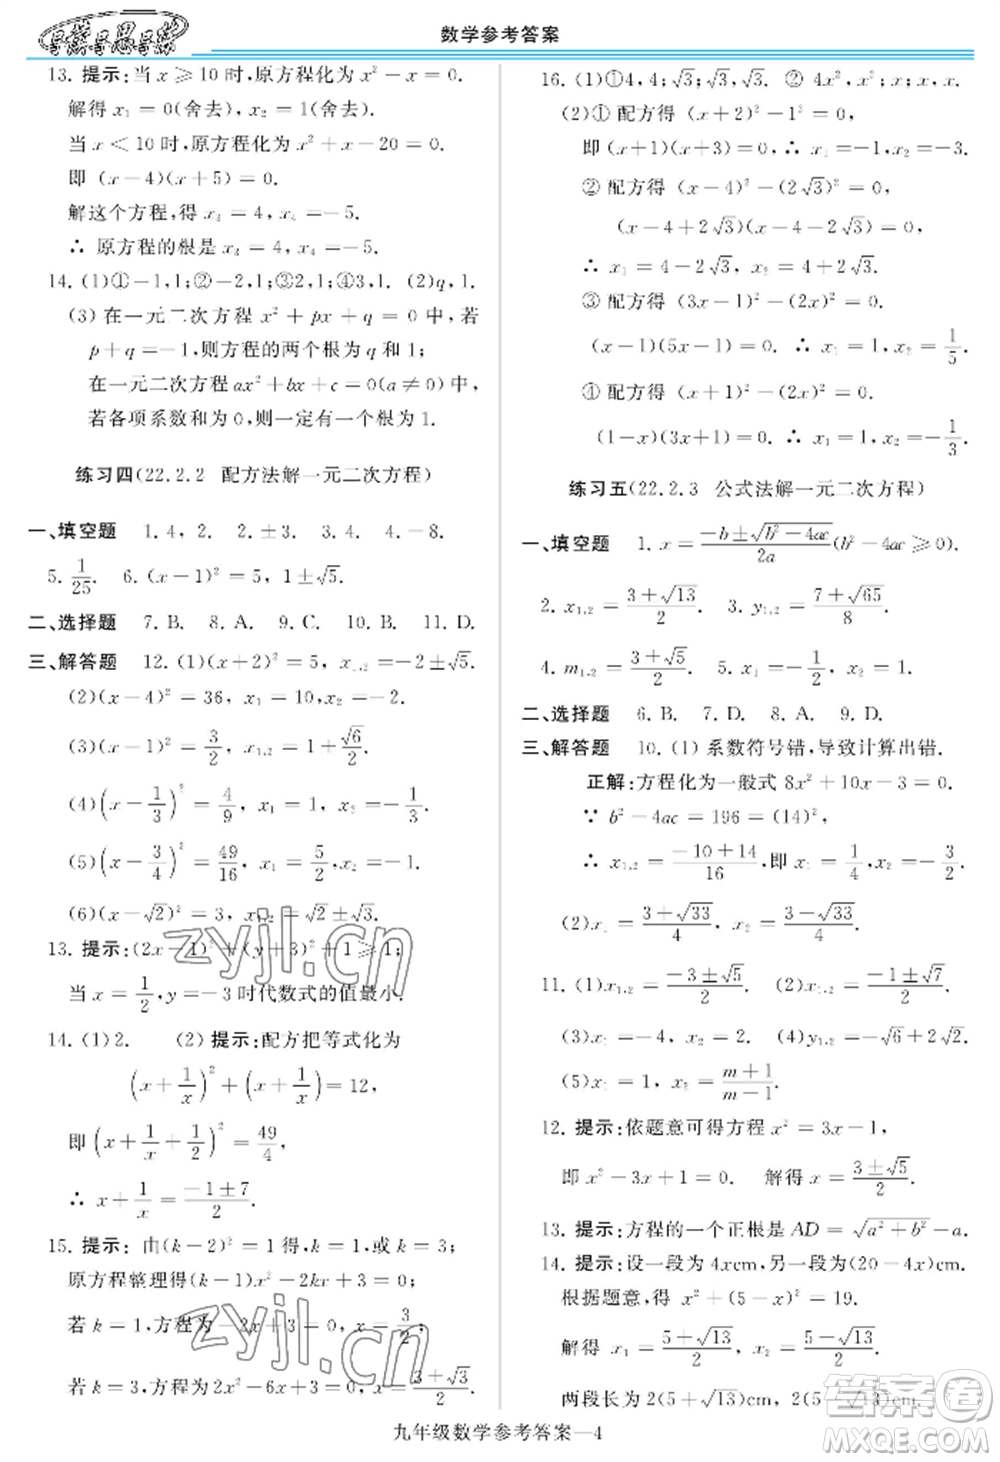 导学导思导练
数学参考答案
13. 提示:当 x ⩾ 10 时,原方程化为 x² − x = 0.
解得 x₁ = 0(舍去), x₂ = 1(舍去).
当 x < 10 时,原方程化为 x² + x − 20 = 0.
即 (x−4)(x+5) = 0.
解这个方程,得 x₃ = 4, x₄ = −5.
∴ 原方程的根是 x₃ = 4, x₄ = −5.
14. (1)①−1,1;②−2,1;③1,1. (2)q,1.
(3) 在一元二次方程 x² + px + q = 0 中,若
p+q=−1,则方程的两个根为 q 和 1;
在一元二次方程 ax² + bx + c = 0(a ≠ 0) 中,
若各项系数和为 0,则一定有一个根为 1.
练习四(22.2.2 配方法解一元二次方程)
一、填空题 1. 4, 2. 2. ±3. 3. 4. 4. −8.
5. 1/25. 6. (x−1)² = 5, 1±√5.
二、选择题 7. B. 8. A. 9. C. 10. B. 11. D.
三、解答题 12. (1)(x+2)² = 5, x₁,₂ = −2±√5.
(2)(x−4)² = 36, x₁ = 10, x₂ = −2.
(3)(x−1)² = 3/2, x₁,₂ = 1±√6/2.
(4)(x−1/3)² = 4/9, x₁ = 1, x₂ = −1/3.
(5)(x−3/4)² = 49/16, x₁ = 5/2, x₂ = −1.
(6)(x−√2)² = 3, x₁,₂ = √2±√3.
13. 提示:(2x−1)² + (y+3)² + 1 ⩾ 1;
当 x = 1/2, y = −3 时代数式的值最小.
14. (1) 2. (2) 提示:配方把等式化为
(x+1/x)² + (x+1/x) = 12,
即 (x+1/x+1/2)² = 49/4,
∴ x+1/x = (−1±7)/2.
15. 提示: 由(k−2)² = 1 得, k = 1, 或 k = 3;
原方程整理得(k−1)x² − 2kx + 3 = 0;
若 k = 1,方程为 −2x + 3 = 0, x = 3/2;
若 k = 3,方程为 2x² − 6x + 3 = 0, x = (3±√3)/2.
16. (1)①4, 4; √3, √3. ② 4x², x²; x; x.
(2)① 配方得 (x+2)² − 1² = 0,
即 (x+1)(x+3) = 0, ∴ x₁ = −1, x₂ = −3.
② 配方得 (x−4)² − (2√3)² = 0,
(x−4+2√3)(x−4−2√3) = 0,
∴ x₁ = 4−2√3, x₂ = 4+2√3.
③ 配方得 (3x−1)² − (2x)² = 0,
(x−1)(5x−1) = 0. ∴ x₁ = 1, x₂ = 1/5.
④ 配方得 (x+1)² − (2x)² = 0.
(1−x)(3x+1) = 0. ∴ x₁ = 1, x₂ = −1/3.
练习五(22.2.3 公式法解一元二次方程)
一、填空题 1. x = (−b±√(b²−4ac))/2a (b²−4ac ⩾ 0).
2. x₁,₂ = (3±√13)/2. 3. y₁,₂ = (7±√65)/8.
4. m₁,₂ = (3±√5)/2. 5. x₁ = −1/2, x₂ = 1.
二、选择题 6. B. 7. D. 8. A. 9. D.
三、解答题 10. (1) 系数符号错,导致计算出错.
正解:方程化为一般式 8x² + 10x − 3 = 0.
∵ b² − 4ac = 196 = (14)²,
∴ x₁,₂ = (−10±14)/16,即 x₁ = 1/4, x₂ = −3/2.
(2)x₁ = (3+√33)/4, x₂ = (3−√33)/4.
11. (1)x₁,₂ = (−3±√5)/2. (2)x₁,₂ = (−1±√7)/2.
(3)x₁ = −4, x₂ = 2. (4)y₁,₂ = −√6±2√2.
(5)x₁ = 1, x₂ = (m+1)/(m−1).
12. 提示:依题意可得方程 x² = 3x−1,
即 x² − 3x+1 = 0. 解得 x = (3±√5)/2.
13. 提示:方程的一个正根是 AD = √(a²+b²) − a.
14. 提示:设一段为 4xcm,另一段为(20−4x)cm.
根据题意,得 x² + (5−x)² = 19.
解得 x₁ = (5+√13)/2, x₂ = (5−√13)/2.
两段长为 2(5+√13)cm, 2(5−√13)cm.
zyjl.cn
zyjl.cn
答案圈
九年级数学参考答案—4